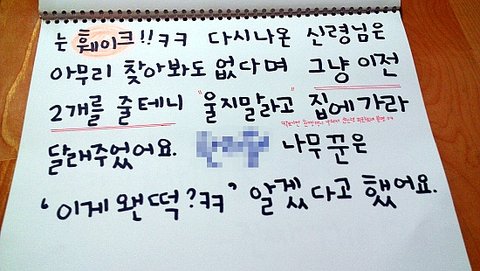 는 훼이크!!ㅋㅋ 다시나온 신령님은
아무리 찾아봐도 없다며 그냥 이전
2개를 줄테니 "울지말라고" 집에가라
달래주었어요. 나무꾼은
'이게 왠 떡?ㅋㅋ' 알겠다고 했어요.